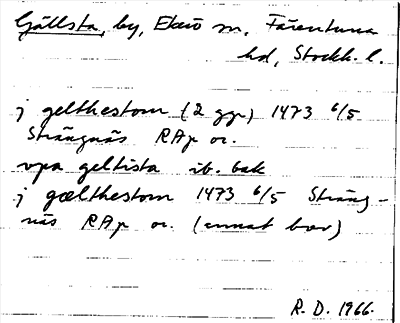 Gällsta, by, Ekerö sn, Färentuna
hd, Stockh. l.
j gelthestom (2 ggr) 1473 6/5
Strängnäs RAp or.
vpa geltista ib. bak
j gælthestom 1473 6/5 Sträng-
näs RAp or. (annat brev)
R. D. 1966.